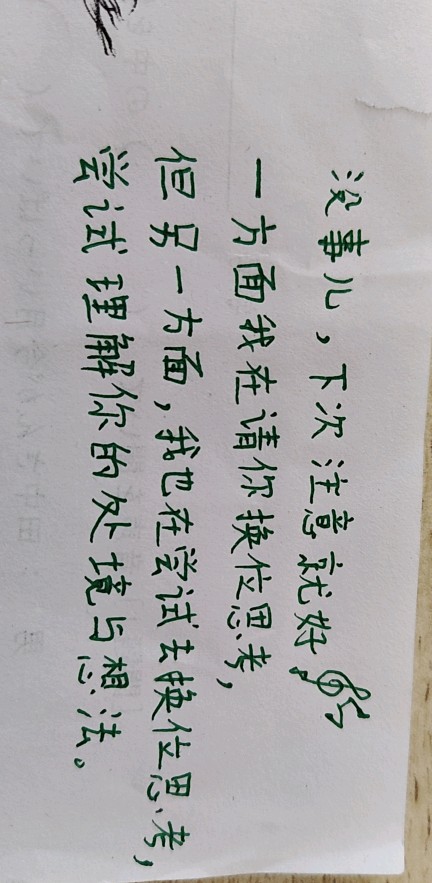 没事儿，下次注意就好
一方面我在请你换位思考，
但另一方面，我也在尝试去换位思考，
尝试理解你的处境与想法。